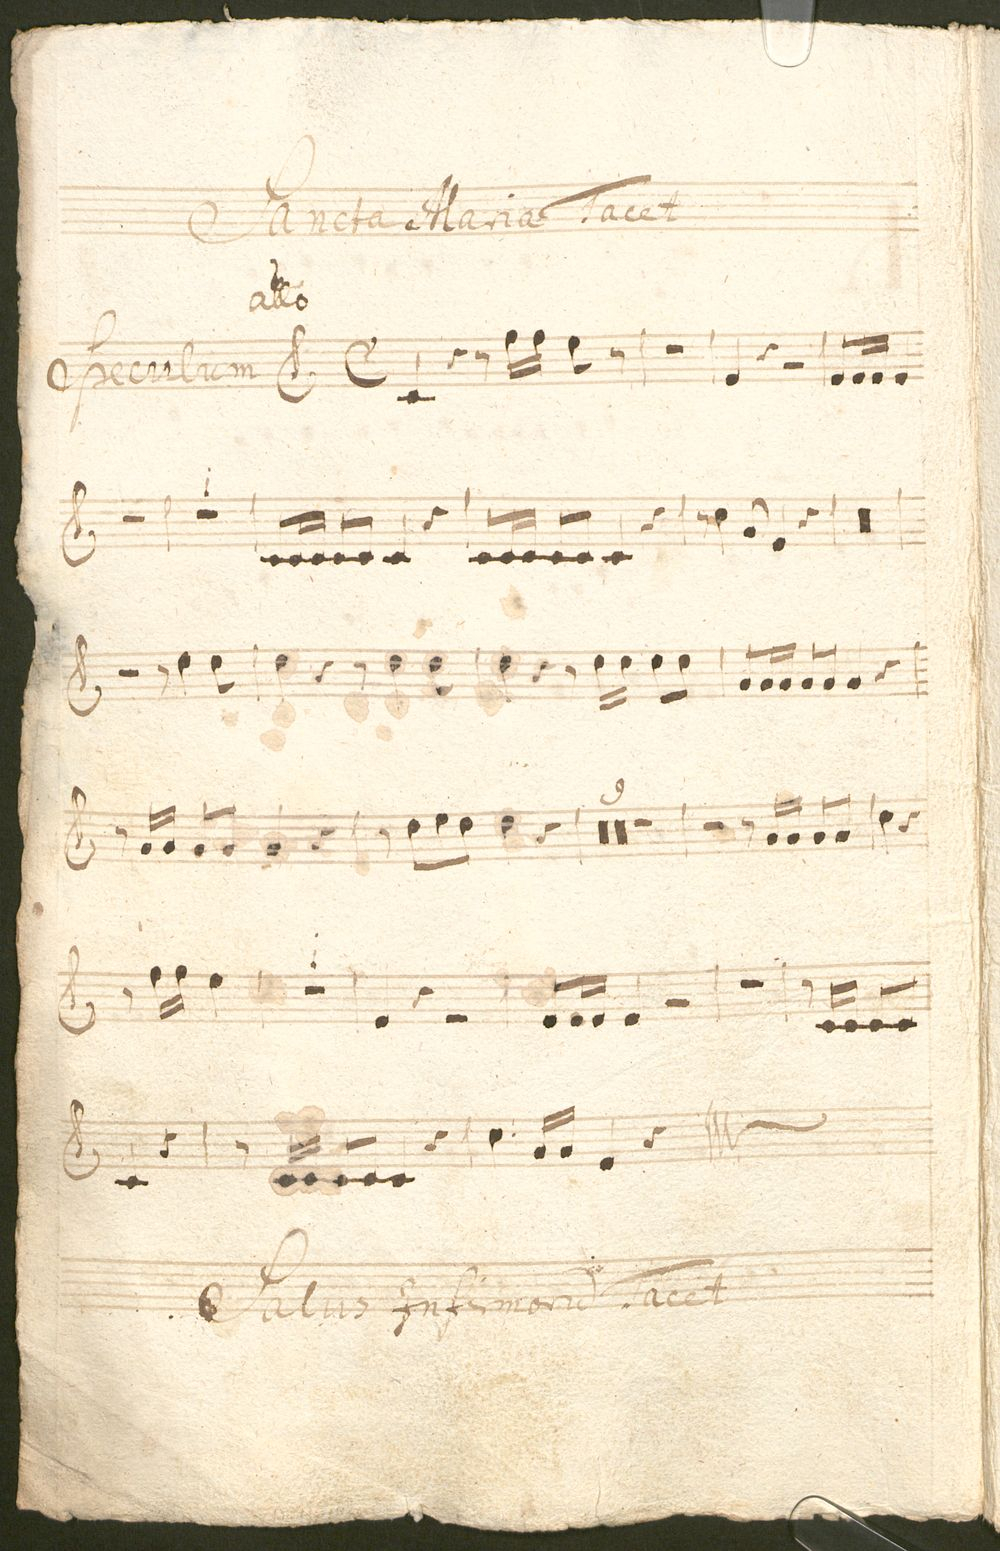 Sancta Maria Tacet
allo
Speculum
9
Salus Infirmorū Tacet